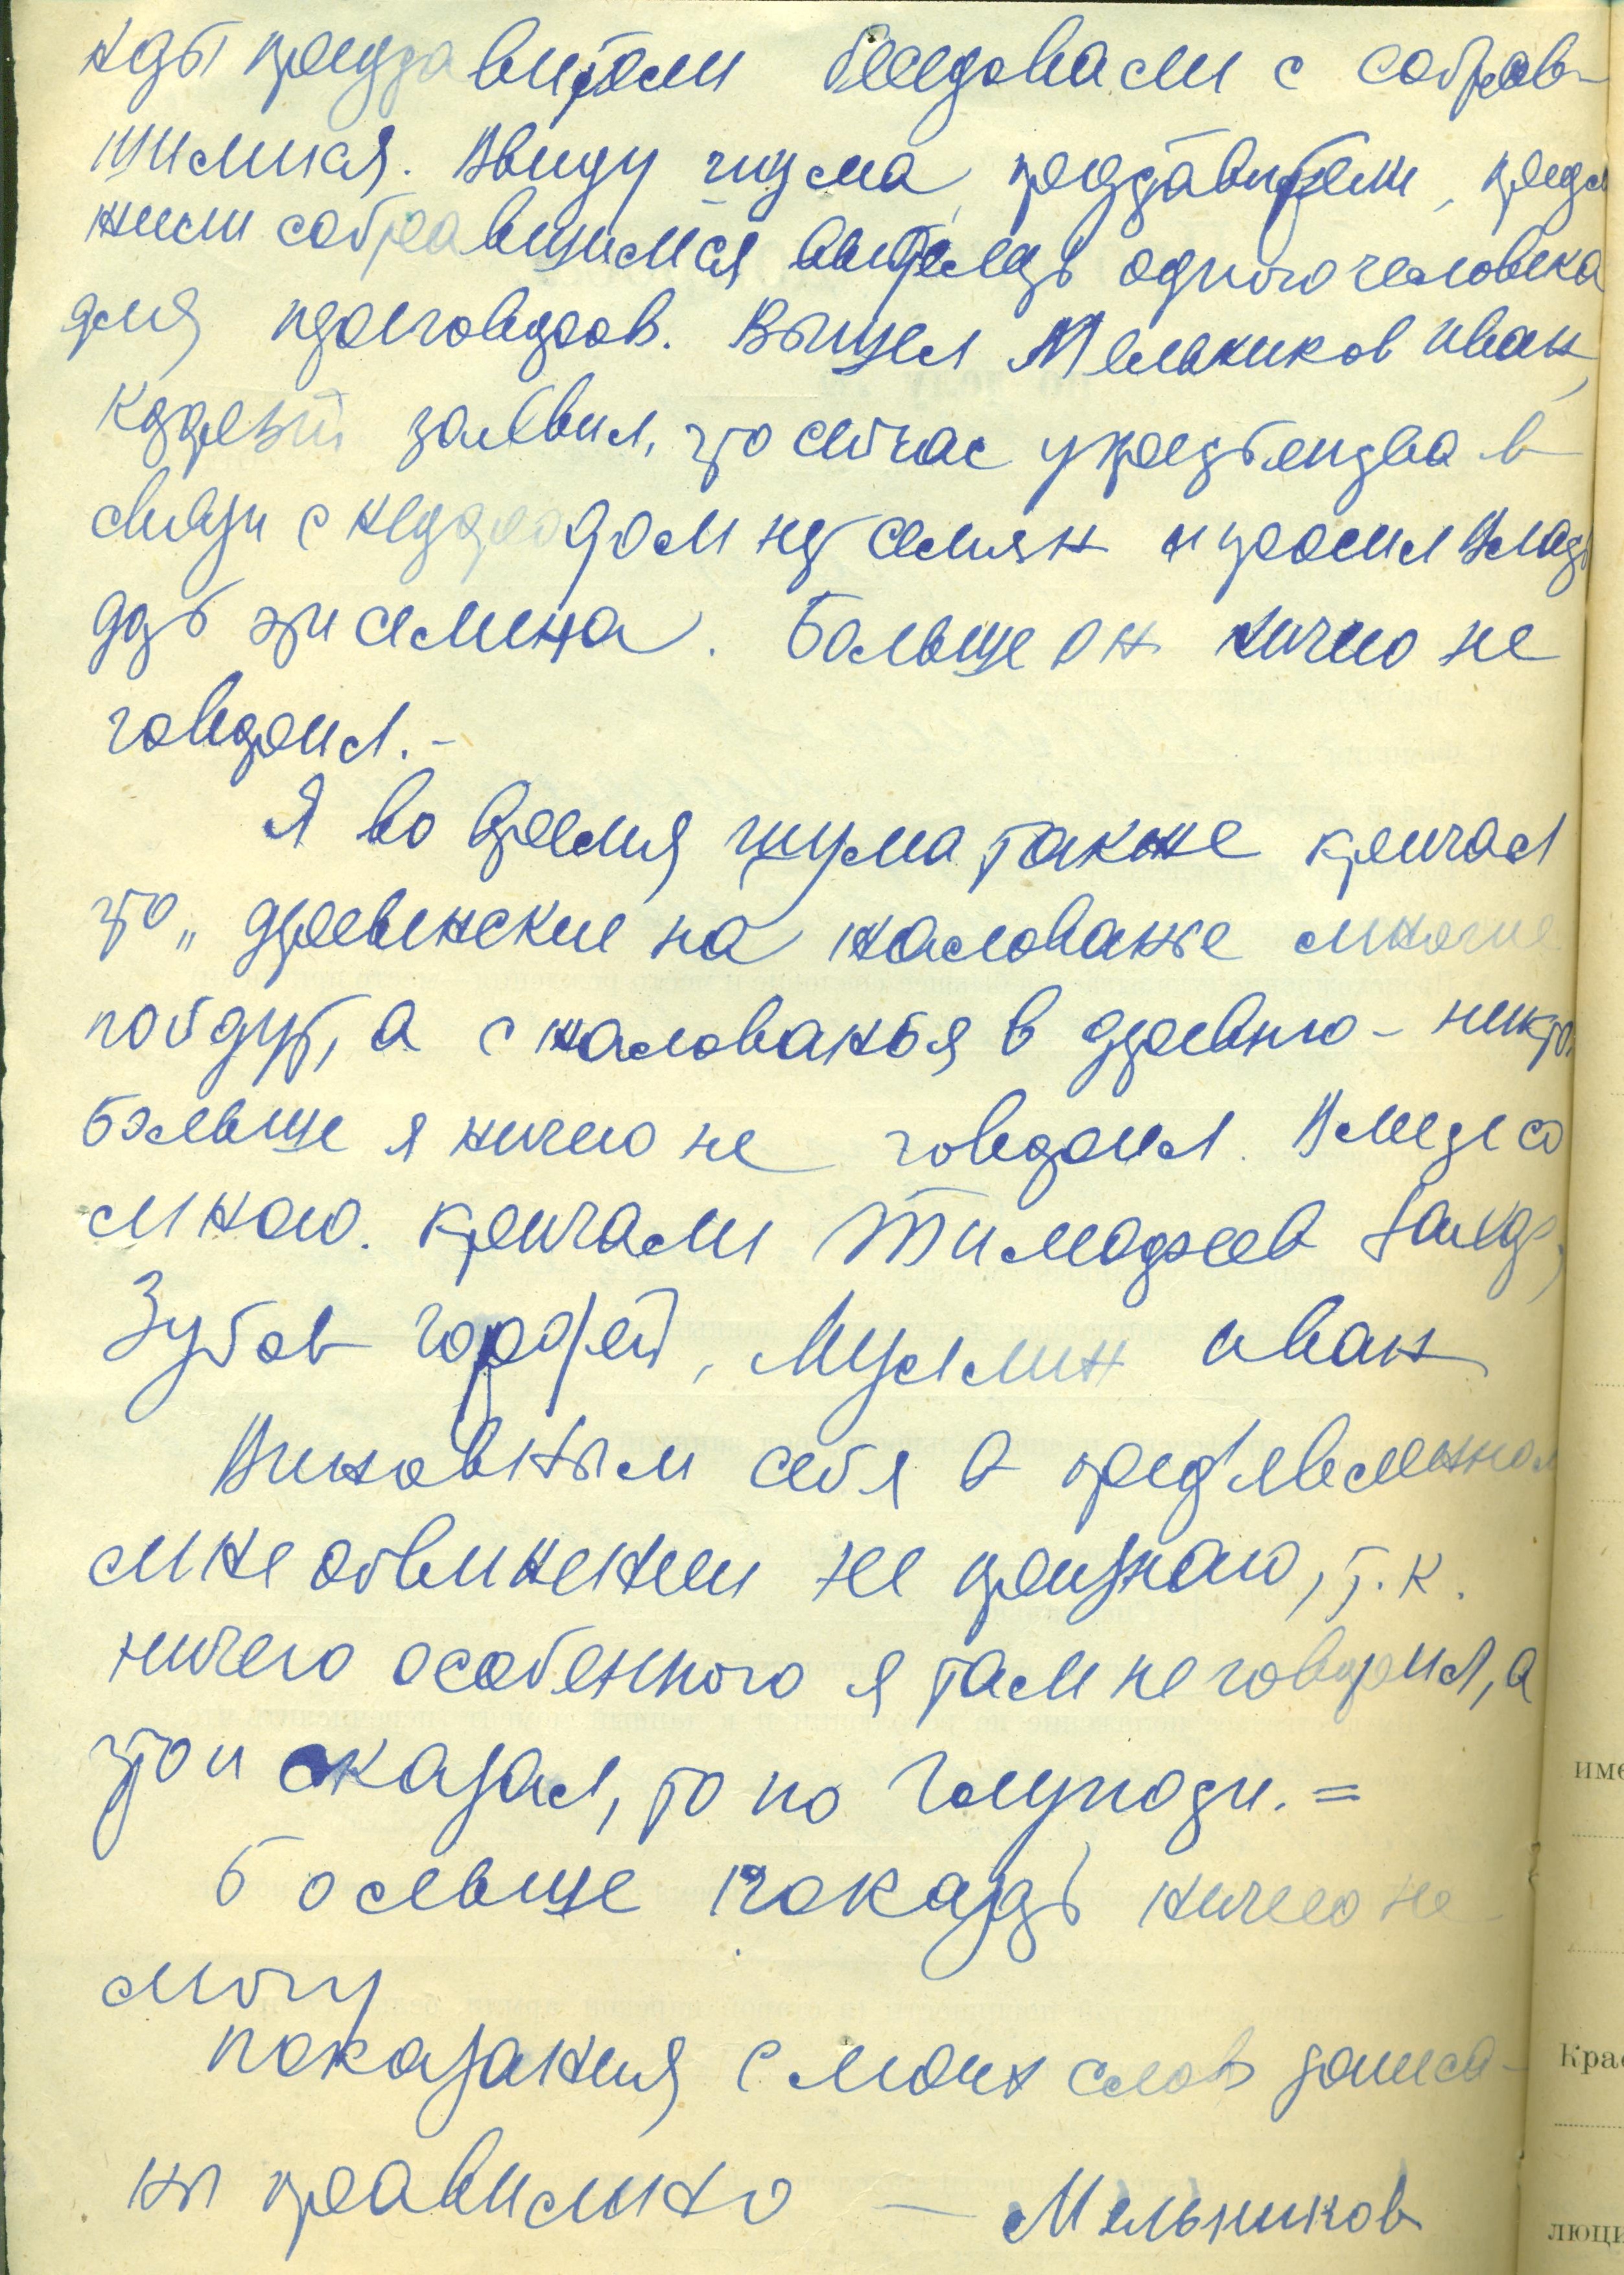 кды представители беседовали с собрав-
шимися. Ввиду шума, представители, предл
жили собравшимся выделить одного человека
для переговоров. Вышел Мельников Иван,
который заявил, что сейчас у крестьянства в
связи с недородом нет семян и просил власть
дать эти семена. Больше он ничего не
говорил.-
Я во время шума также кричал
что „деревенские на жалованье многие
пойдут, а с жалованья в деревню - никто.
Больше я ничего не говорил. Вместе со
мною. кричали Тимофеев
Зубов Горфей, Мулмин Иван
Виновным себя в пред'явленном
мне обвинении не признаю, т.к.
ничего особенного я там не говорил, а
что и сказал, то по глупости. =
Больше показать ничего не
могу
Показания с моих слов записа-
ны правильно — Мельников
име
Крас
люци